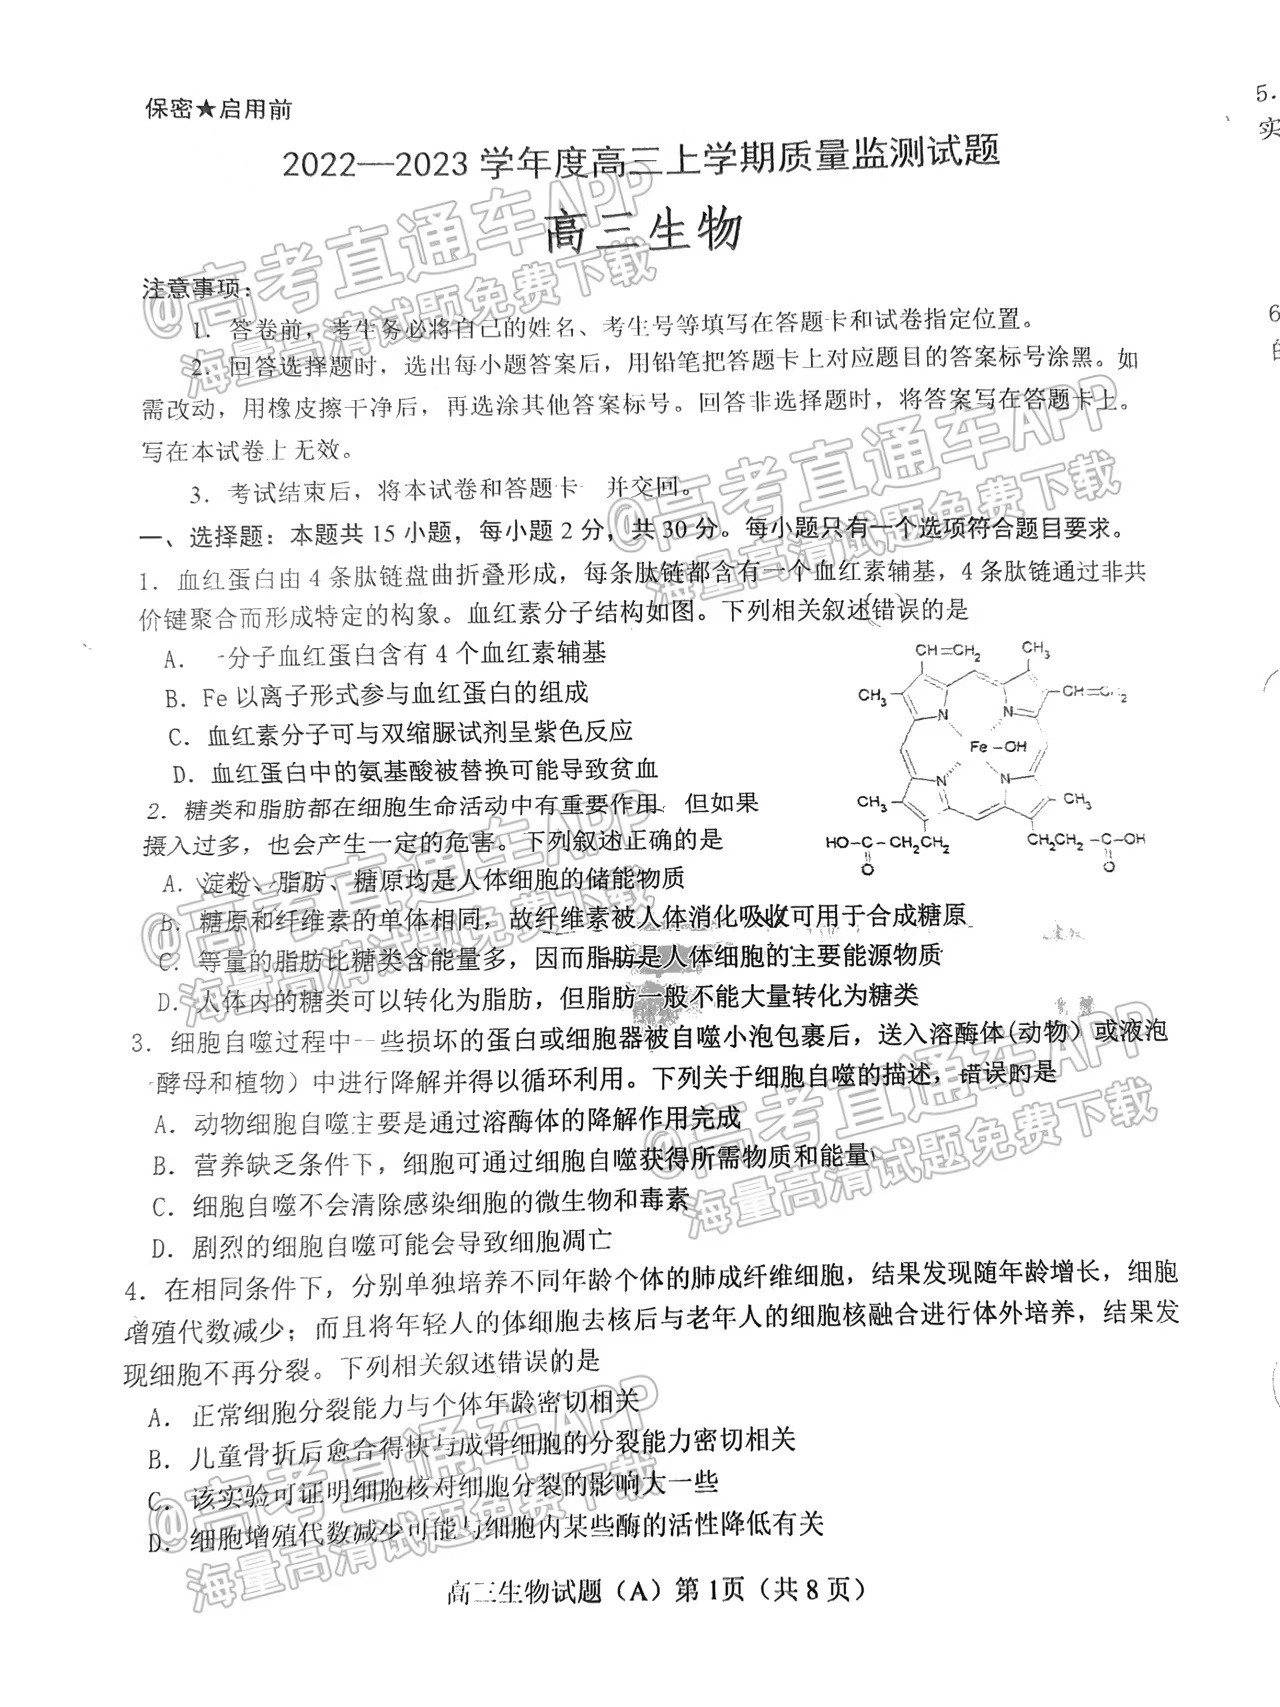 保密★启用前
2022—2023 学年度高三上学期质量监测试题
高三生物
注意事项：
1. 答卷前，考生务必将自己的姓名、考生号等填写在答题卡和试卷指定位置。
2. 回答选择题时，选出每小题答案后，用铅笔把答题卡上对应题目的答案标号涂黑。如
需改动，用橡皮擦干净后，再选涂其他答案标号。回答非选择题时，将答案写在答题卡上。
写在本试卷上无效。
3. 考试结束后，将本试卷和答题卡 并交回。
一、选择题：本题共 15 小题，每小题 2 分，共 30 分。每小题只有一个选项符合题目要求。
1. 血红蛋白由 4 条肽链盘曲折叠形成，每条肽链都含有一个血红素辅基，4 条肽链通过非共
价键聚合而形成特定的构象。血红素分子结构如图。下列相关叙述错误的是
A. 一分子血红蛋白含有 4 个血红素辅基
B. Fe 以离子形式参与血红蛋白的组成
C. 血红素分子可与双缩脲试剂呈紫色反应
D. 血红蛋白中的氨基酸被替换可能导致贫血
CH=CH₂
CH₃
CH₃
CH=CH₂
N
N
Fe -OH
N
N
CH₃
CH₃
HO-C-CH₂CH₂
CH₂CH₂-C-OH
O
O
2. 糖类和脂肪都在细胞生命活动中有重要作用 但如果
摄入过多，也会产生一定的危害。下列叙述正确的是
A. 淀粉、脂肪、糖原均是人体细胞的储能物质
B. 糖原和纤维素的单体相同，故纤维素被人体消化吸收可用于合成糖原
C. 等量的脂肪比糖类含能量多，因而脂肪是人体细胞的主要能源物质
D. 人体内的糖类可以转化为脂肪，但脂肪一般不能大量转化为糖类
3. 细胞自噬过程中一些损坏的蛋白或细胞器被自噬小泡包裹后，送入溶酶体(动物）或液泡
（酵母和植物）中进行降解并得以循环利用。下列关于细胞自噬的描述，错误的是
A. 动物细胞自噬主要是通过溶酶体的降解作用完成
B. 营养缺乏条件下，细胞可通过细胞自噬获得所需物质和能量
C. 细胞自噬不会清除感染细胞的微生物和毒素
D. 剧烈的细胞自噬可能会导致细胞凋亡
4. 在相同条件下，分别单独培养不同年龄个体的肺成纤维细胞，结果发现随年龄增长，细胞
增殖代数减少；而且将年轻人的体细胞去核后与老年人的细胞核融合进行体外培养，结果发
现细胞不再分裂。下列相关叙述错误的是
A. 正常细胞分裂能力与个体年龄密切相关
B. 儿童骨折后愈合得快与成骨细胞的分裂能力密切相关
C. 该实验可证明细胞核对细胞分裂的影响大一些
D. 细胞增殖代数减少可能与细胞内某些酶的活性降低有关
高三生物试题（A）第 1页（共 8 页）
5.
实
6
@高考直通车APP
海量高清试题免费下载
@高考直通车APP
海量高清试题免费下载
@高考直通车APP
海量高清试题免费下载
@高考直通车APP
海量高清试题免费下载
@高考直通车APP
海量高清试题免费下载